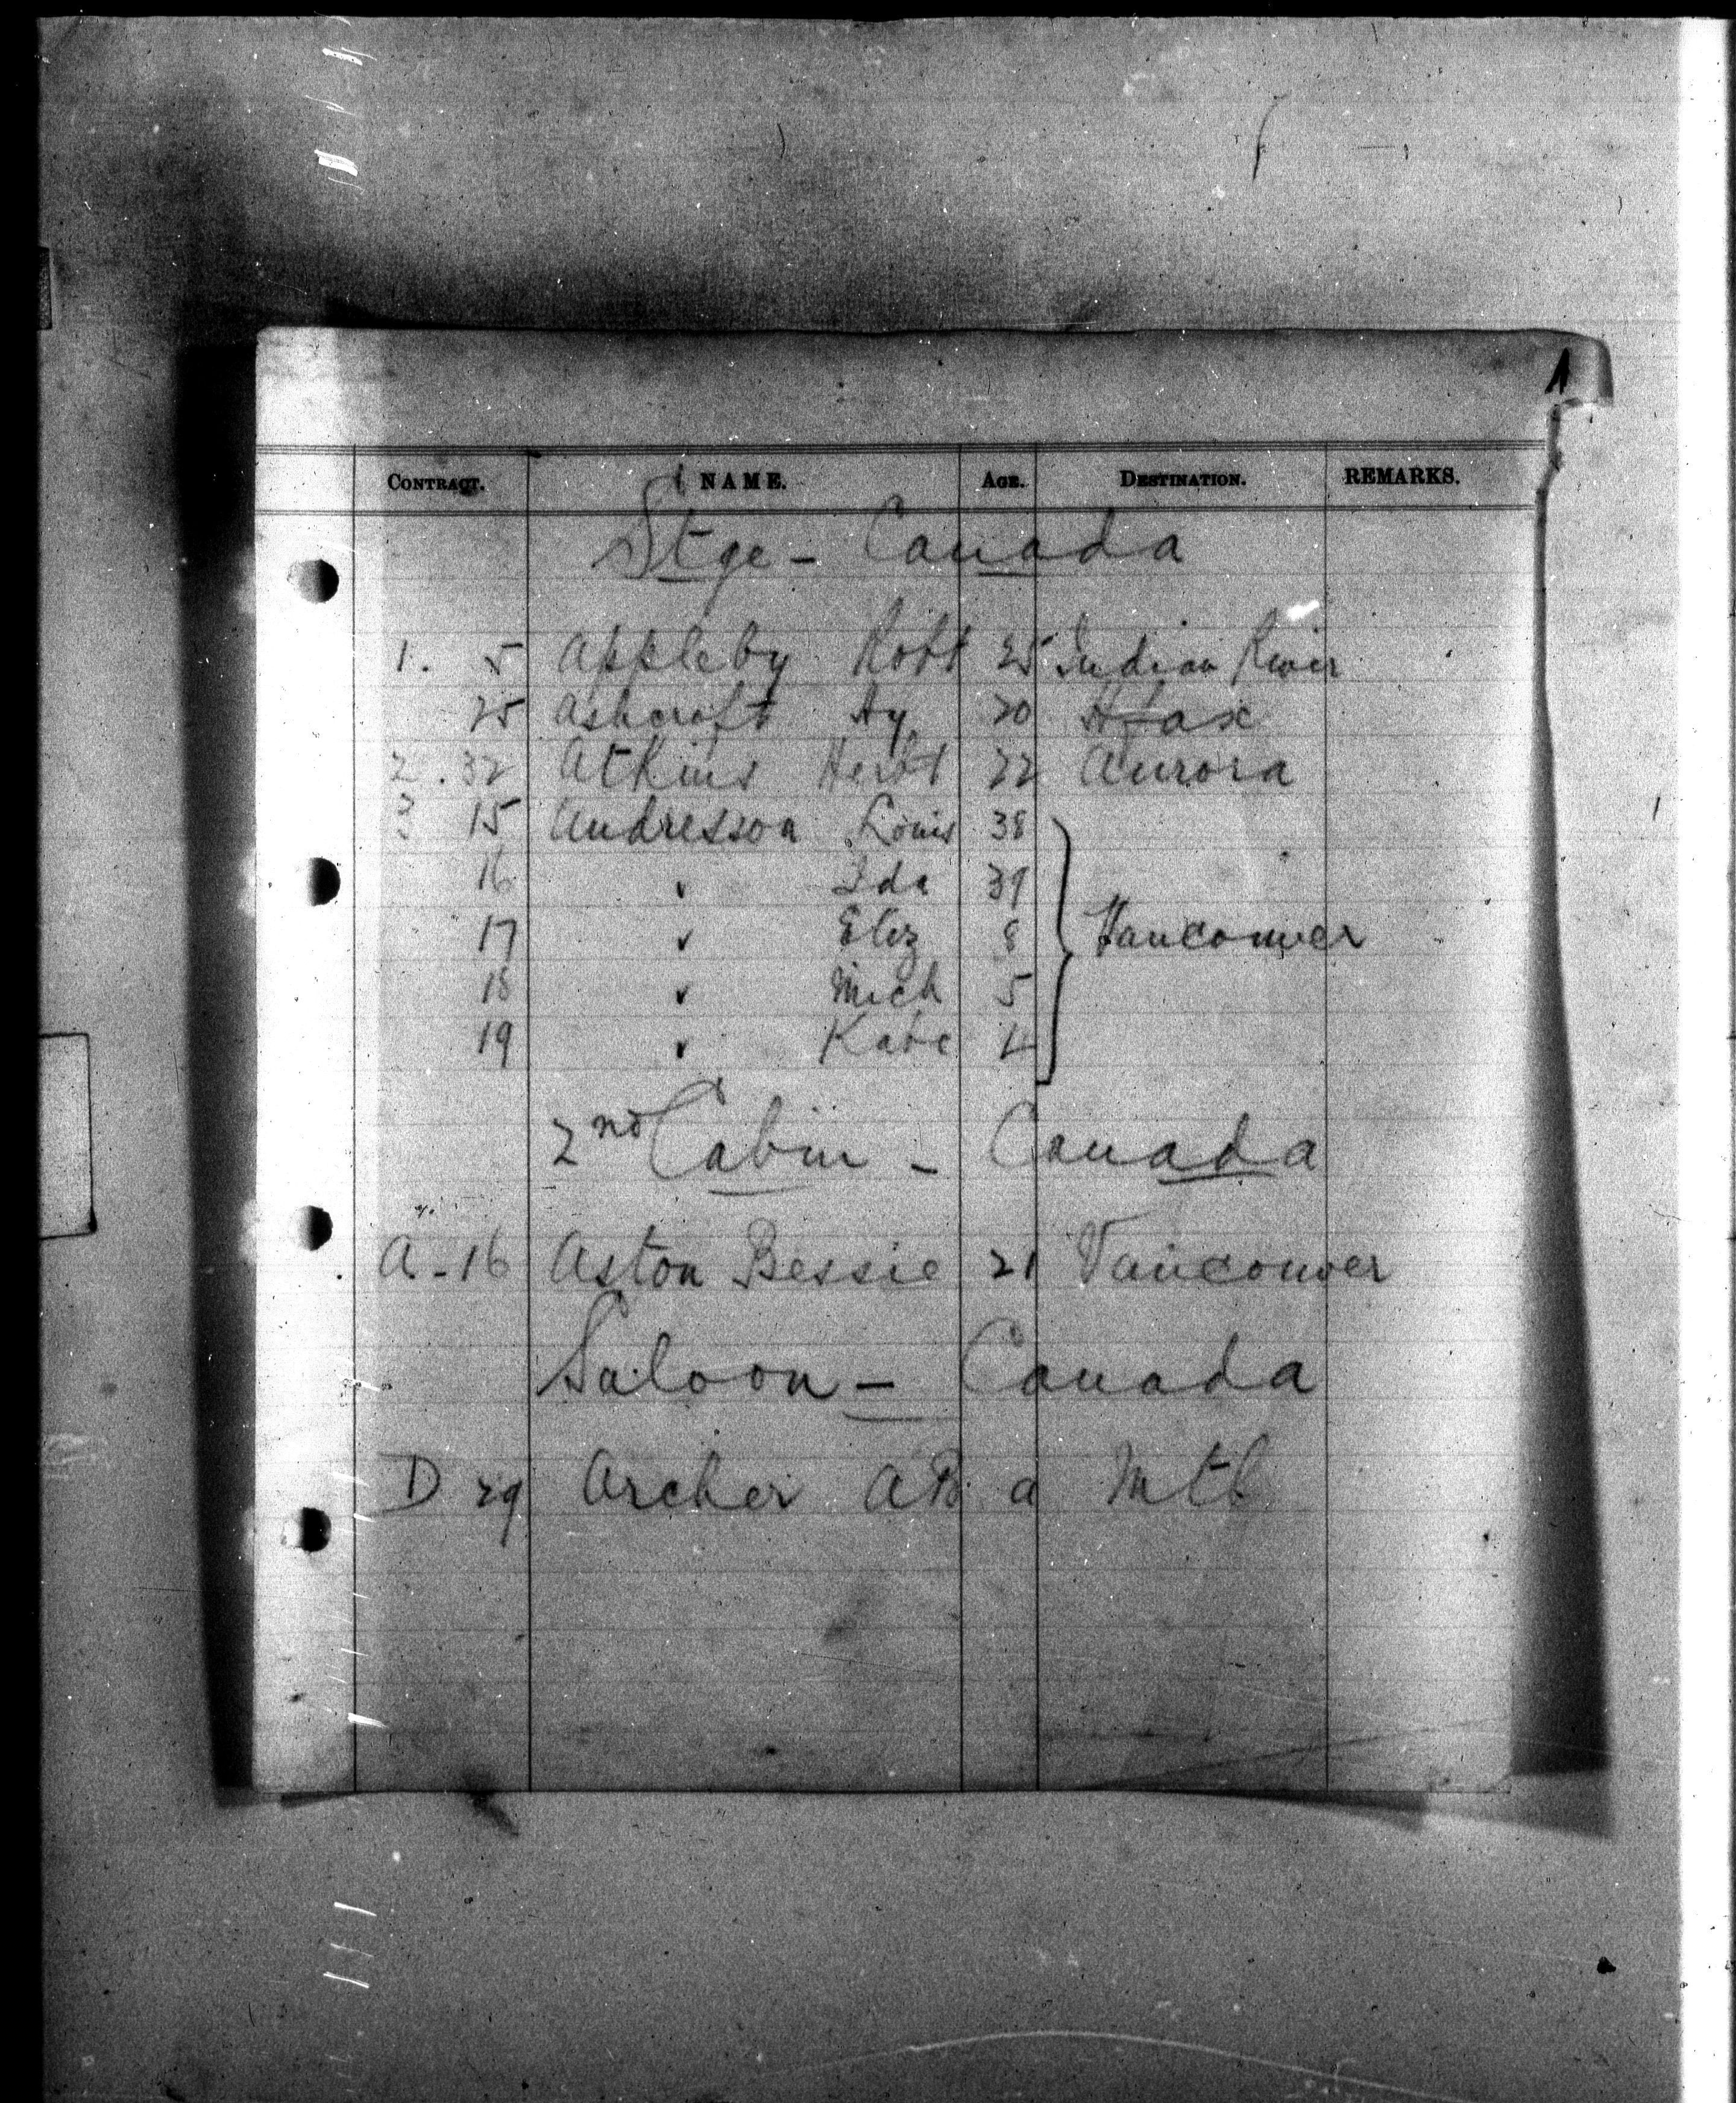 CONTRACT. NAME. AGE. DESTINATION. REMARKS.
Stge - Canada
1. 5 Appleby Robt 25 Indian River
25 Ashcroft Hy 20 Hfax
2. 32 Atkins Herbt 22 Aurora
3 15 Andresson Louis 38
16 " Ida 39
17 " Eliz 8 Vancouver
18 " Mich 5
19 " Kate 4
2nd Cabin - Canada
A - 16 Aston Bessie 21 Vancouver
Saloon - Canada
D 29 Archer AB a Mtl